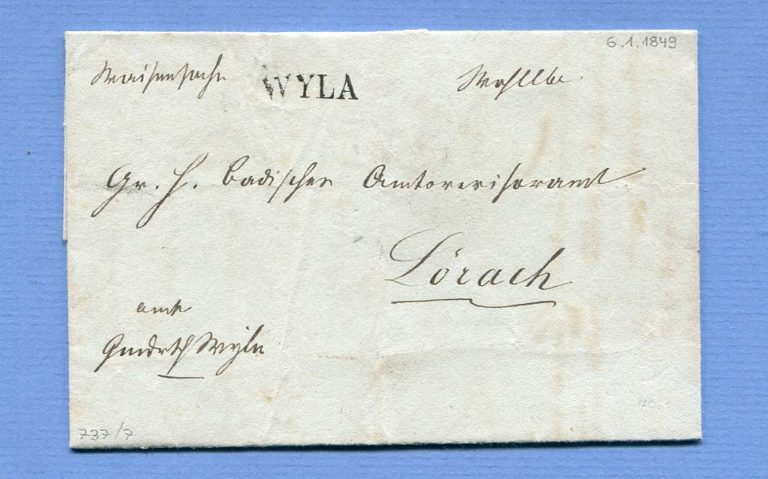 6.1.1849
Waisensache WYLA Wohllbe.
Gr. H. badisches Amtsrevisoramt
Lörach
amtl
Gmdrth Wyla
737/7